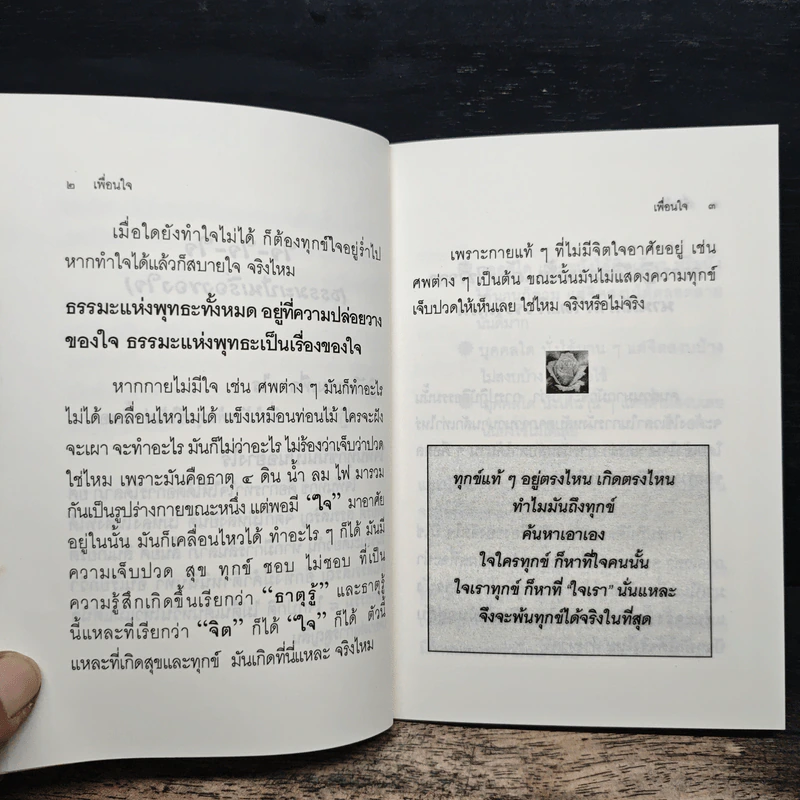 ๒ เพื่อนใจ
เมื่อใดยังทำใจไม่ได้ ก็ต้องทุกข์ใจอยู่ร่ำไป
หากทำใจได้แล้วก็สบายใจ จริงไหม
ธรรมะแห่งพุทธะทั้งหมด อยู่ที่ความปล่อยวาง
ของใจ ธรรมะแห่งพุทธะเป็นเรื่องของใจ
หากกายไม่มีใจ เช่น ศพต่าง ๆ มันก็ทำอะไร
ไม่ได้ เคลื่อนไหวไม่ได้ แข็งเหมือนท่อนไม้ ใครจะฝัง
จะเผา จะทำอะไร มันก็ไม่ว่าอะไร ไม่ร้องว่าเจ็บว่าปวด
ใช่ไหม เพราะมันคือธาตุ ๔ ดิน น้ำ ลม ไฟ มารวม
กันเป็นรูปร่างกายขณะหนึ่ง แต่พอมี “ใจ” มาอาศัย
อยู่ในนั้น มันก็เคลื่อนไหวได้ ทำอะไร ๆ ก็ได้ มันมี
ความเจ็บปวด สุข ทุกข์ ชอบ ไม่ชอบ ที่เป็น
ความรู้สึกเกิดขึ้นเรียกว่า “ธาตุรู้” และธาตุรู้
นี้แหละที่เรียกว่า “จิต” ก็ได้ “ใจ” ก็ได้ ตัวนี้
แหละที่เกิดสุขและทุกข์ มันเกิดที่นี่แหละ จริงไหม
เพื่อนใจ ๓
เพราะกายแท้ ๆ ที่ไม่มีจิตใจอาศัยอยู่ เช่น
ศพต่าง ๆ เป็นต้น ขณะนั้นมันไม่แสดงความทุกข์
เจ็บปวดให้เห็นเลย ใช่ไหม จริงหรือไม่จริง
ทุกข์แท้ ๆ อยู่ตรงไหน เกิดตรงไหน
ทำไมมันถึงทุกข์
ค้นหาเอาเอง
ใจใครทุกข์ ก็หาที่ใจคนนั้น
ใจเราทุกข์ ก็หาที่ “ใจเรา” นั่นแหละ
จึงจะพ้นทุกข์ได้จริงในที่สุด